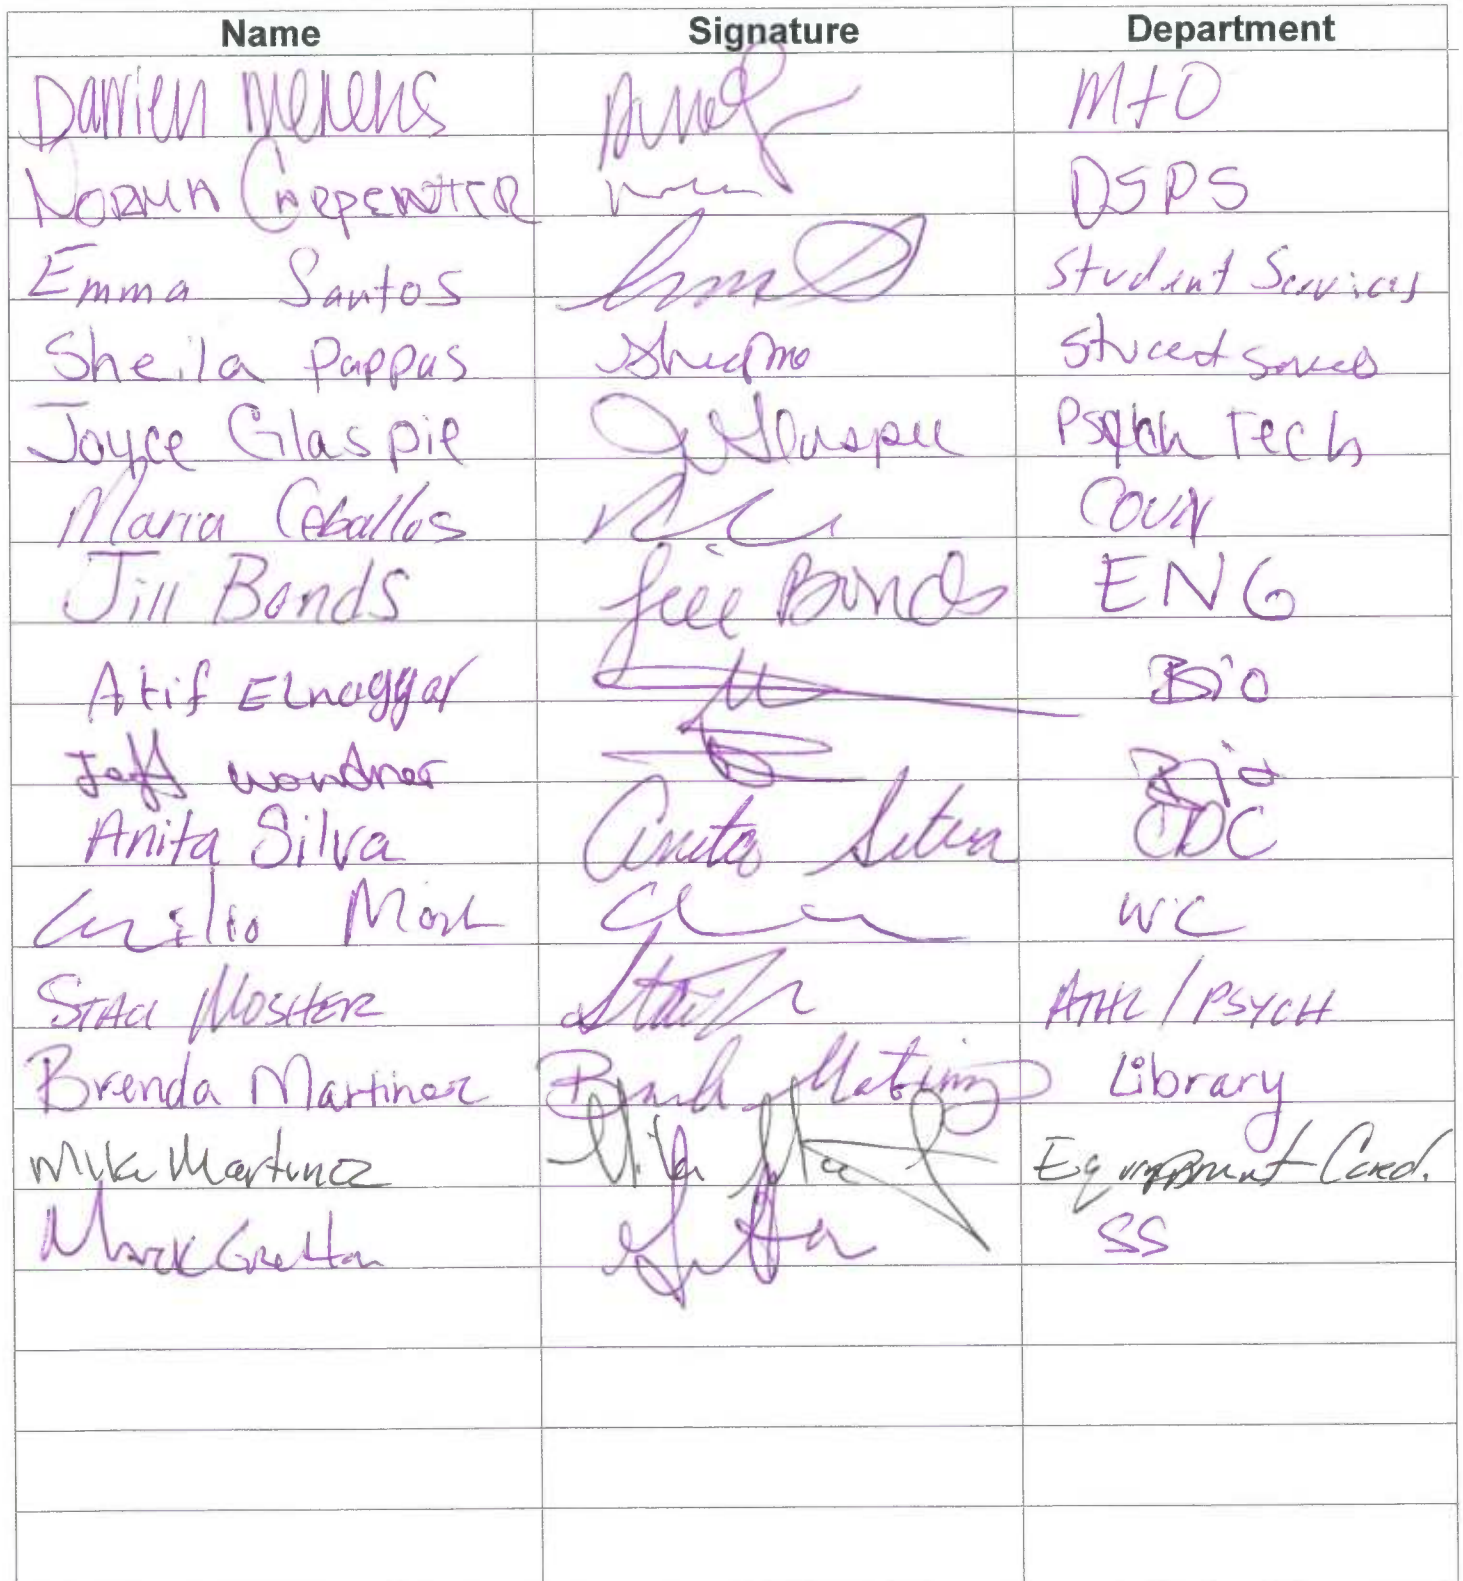 Name Signature Department
Darrien M+O
NORMA CARPENTIER DSPS
Emma Santos Student Services
Sheila Pappas
Joyce Glaspie J Glaspie Psych Tech
Maria Ceballos COUN
Jill Bonds Jill Bonds ENG
Atif Elnaggar Bio
Jeff Wondner Bio
Anita Silva Anita Silva CDC
WC
STACI MOSHER ATHL / PSYCH
Brenda Martinez Library
Mike Martinez Equipment Cord.
Mark Gretton SS